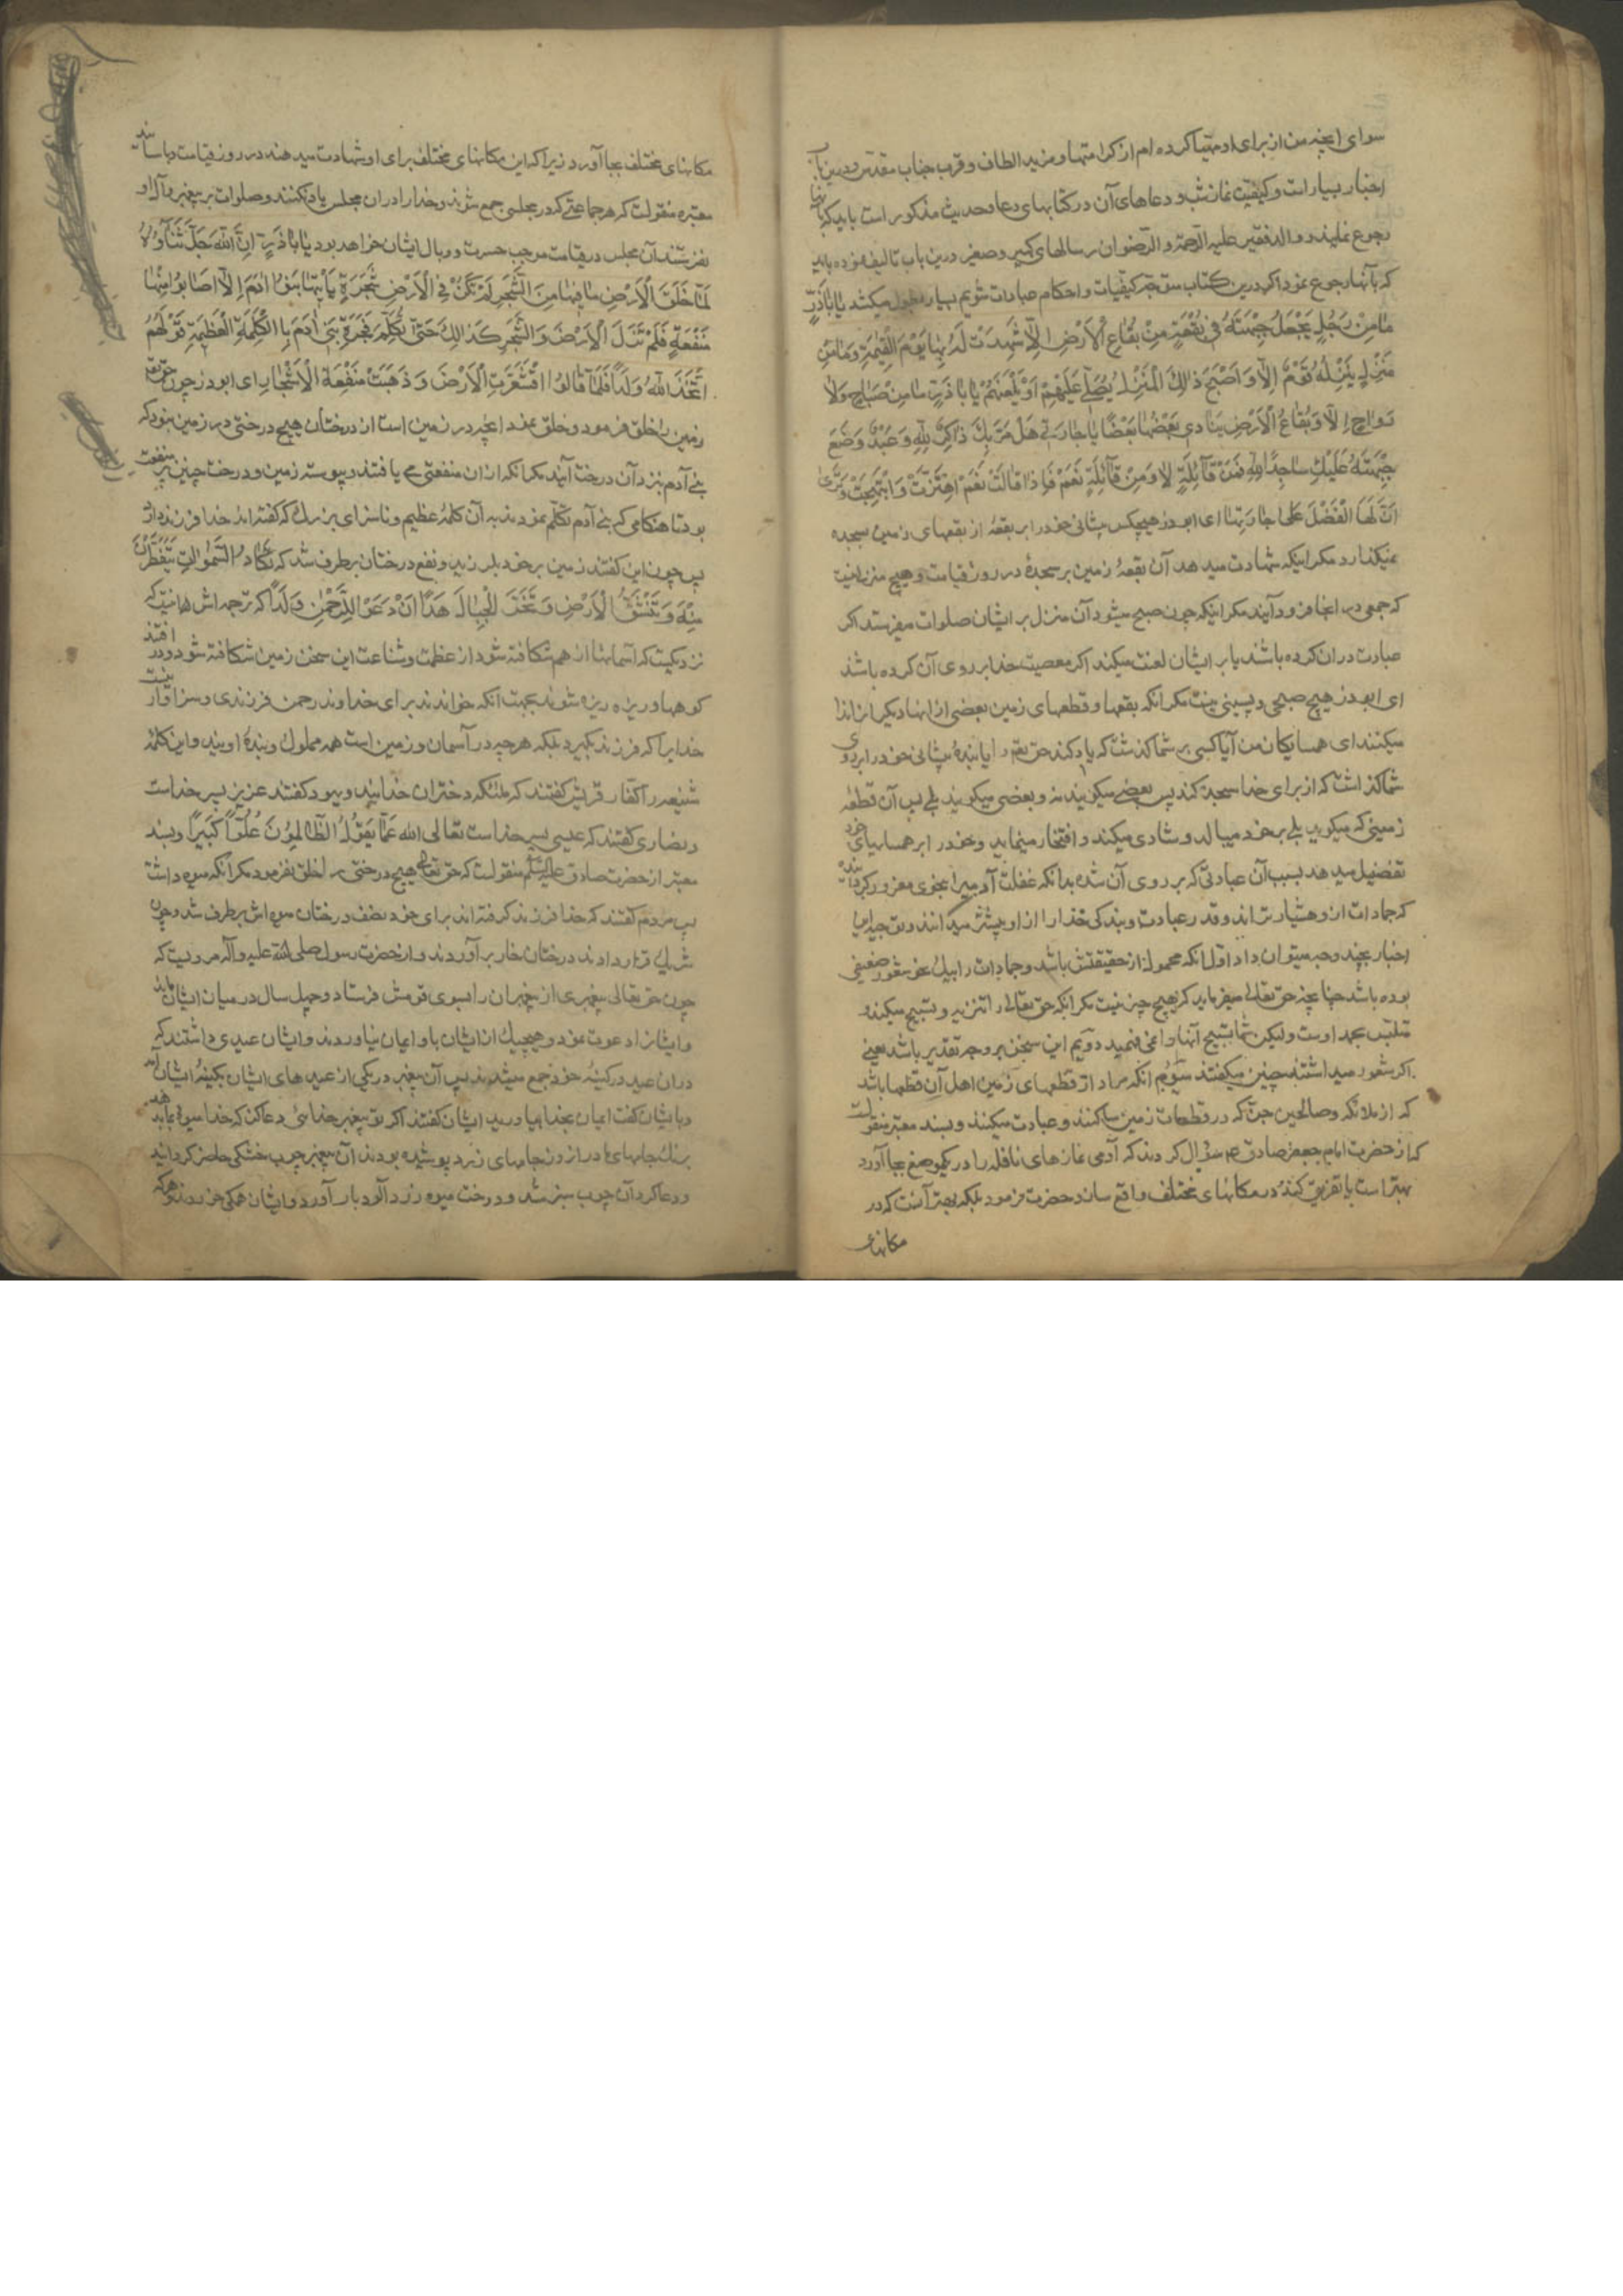 سوای انچه من از برای او مهیا کرده ام از کرامتها و مزید الطاف و قرب جناب مقدس و درین باب
اخبار بسیار است و کیفیت نماز شب و دعاهای آن در کتابهای دعا و حدیث مذکور است باید که بآنها
رجوع نمایند و والد فقیر علیه الرحمة و الرضوان رسالهای کبیر و صغیر درین باب تالیف نموده باید
که بآنها رجوع نمود اگر درین کتاب متوجه کیفیات و احکام عبادات شویم بسیار بطول میکشد یا اباذر
ما من رجل یجعل جبهته فی بقعة من بقاع الارض الا شهدت له بها یوم القیمة و ما من
منزل ینزله قوم الا و اصبح ذلک المنزل یصلی علیهم او یلعنهم یا باذر ما من صباح ولا
رواح الا و بقاع الارض ینادی بعضها بعضا یا جارتی هل مر بک ذاکر لله و عبد وضع
جبهته علیک ساجدا لله فمن قائلة لا و من قائلة نعم فاذا قالت نعم اهتزت و ابتهجت و تری
ان لها الفضل علی جارتها ای ابوذر هیچکس پیشانی خود را بر بقعهٔ از بقعهای زمین بسجده
نمیگذارد مگر اینکه شهادت میدهد آن بقعهٔ زمین بر سجدهٔ در روز قیامت و هیچ منزلی نیست
که جمعی در انجا فرود آیند مگر اینکه چون صبح میشود آن منزل بر ایشان صلوات میفرستد اگر
عبادت دران کرده باشند یا بر ایشان لعنت میکند اگر معصیت خدا بر روی آن کرده باشند
ای ابوذر هیچ صبحی و پسینی نیست مگر انکه بقعها و قطعهای زمین بعضی ازانها دیگرانرا ندا
میکنند ای همسایکان من آیا کسی بر شما گذشت که یاد کند حق تعم را یا بندهٔ پیشانی خود را بروی
شما گذاشت که از برای خدا سجده کند پس بعضی میگویند نه و بعضی میگویند بلی پس آن قطعه
زمینی که میگوید بلی بر خود میبالد و شادی میکند و افتخار مینماید و خود را بر همسایهای خود
تفضیل میدهد بسبب آن عبادتی که بر روی آن شده بدانکه غفلت آدمی را بنحوی مغرور کرده
که جمادات ازو هشیارتراند و قدر عبادت و بندگی خدا را از او بیشتر میدانند و توجیه این
اخبار بچند وجه میتوان داد اول انکه محمول از حقیقتش باشد و جمادات را بیک نحو شعور ضعیفی
بوده باشد چنانچه حق تعالی میفرماید که هیچ چیز نیست مگر انکه حق تعالی را تنزیه و تسبیح میکند و
متلبس بحمد اوست ولیکن شما تسبیح آنها را نمی فهمید دویم این سخن بر وجه تقدیر باشد یعنی
اگر شعور میداشتند چنین میگفتند سوم انکه مراد از قطعهای زمین اهل آن قطعها باشد
که از ملائکه و صالحین جن که در قطعات زمین ساکنند و عبادت میکنند و بسند معتبر منقولست
که از حضرت امام جعفر صادق ع سؤال کردند که آدمی نمازهای نافله را در یک موضع بجا آورد
بهتر است یا تفریق کند و در مکانهای مختلف واقع سازد حضرت فرمود بلکه بهتر آنست که در
مکانهای
مکانهای مختلف بجا آورد زیرا که این مکانهای مختلف برای او شهادت میدهند در روز قیامت و باسانید
معتبره منقولست که هر جماعتی که در مجلسی جمع شوند و خدا را دران مجلس یاد نکنند و صلوات بر پیغمبر و آل او
نفرستند آن مجلس در قیامت موجب حسرت و وبال ایشان خواهد بود یا اباذر ان الله جل ثناؤه
لما خلق الارض و ما فیها من الشجر لم تکن فی الارض شجرة یأتیها بنوا ادم الا اصابوا منها
منفعة فلم تزل الارض و الشجر کذلک حتی تکلم فجرة بنی ادم بالکلمة العظیمة قولهم
اتخذ الله ولدا فلما قالوا اقشعرت الارض و ذهبت منفعة الاشجار ای ابوذر چون حق تعم
زمین را خلق فرمود و خلق نمود انچه در زمین است از درختان هیچ درختی در زمین نبود که
بنی آدم بنزد آن درخت آیند مگر انکه ازان منفعتی می یافتند و پیوسته زمین و درخت چنین پر منفعت
بود تا هنکامی که بنی آدم تکلم نمودند به آن کلمهٔ عظیم و ناسزای بزرگ که گفتند خدا فرزند دارد
پس چون این گفتند زمین بر خود بلرزید و نفع درختان برطرف شد که تکاد السموات یتفطرن
منه و تنشق الارض و تخر الجبال هدا ان دعوا للرحمن ولدا که ترجمه اش اینست که
نزدیکست که آسمانها از هم شکافته شود از عظمت و شناعت این سخن و زمین شکافته شود و در افتند
کوهها و ریزه ریزه شوند بجهت آنکه خواندند برای خداوند رحمن فرزندی و سزاوار نیست
خدایرا که فرزند بگیرد بلکه هر چه در آسمان و زمین است همه مملوک و بندهٔ اویند و این کلمهٔ
شنیعه را کفار قریش گفتند که ملئکه دختران خدایند و یهود گفتند عزیر پسر خداست
و نصاری گفتند که عیسی پسر خداست تعالی الله عما یقول الظالمون علوا کبیرا و بسند
معتبر از حضرت صادق علیه السلام منقولست که حق تعالی هیچ درختی را خلق نفرمود مگر انکه میوه داشت
پس مردم گفتند که خدا فرزند گرفته اند برای خود نصف درختان میوه اش برطرف شد و چون
شریک قرار دادند درختان خار بر آوردند و از حضرت رسول صلی الله علیه و آله مرویست که
چون حق تعالی پیغمبری از پیغمبران را بسوی قومش فرستاد و چهل سال در میان ایشان ماند
و ایشانرا دعوت نمود و هیچیک از ایشان باو ایمان نیاوردند و ایشان عیدی داشتند که
دران عید در کنیسهٔ خود جمع میشدند پس آن پیغمبر در یکی از عیدهای ایشان بکنیسهٔ ایشان آمد
و بایشان گفت ایمان بخدا بیاورید ایشان گفتند اگر تو پیغمبر خدائی دعا کن که خدا میوهٔ بما بدهد
برنک جامهای ما و دران روز جامهای زرد پوشیده بودند آن پیغمبر چوب خشکی حاضر گردانید
و دعا کرد آن چوب سبز شد و درخت میوهٔ زرد آلود بار آورد و ایشان همگی خوردند و هر که